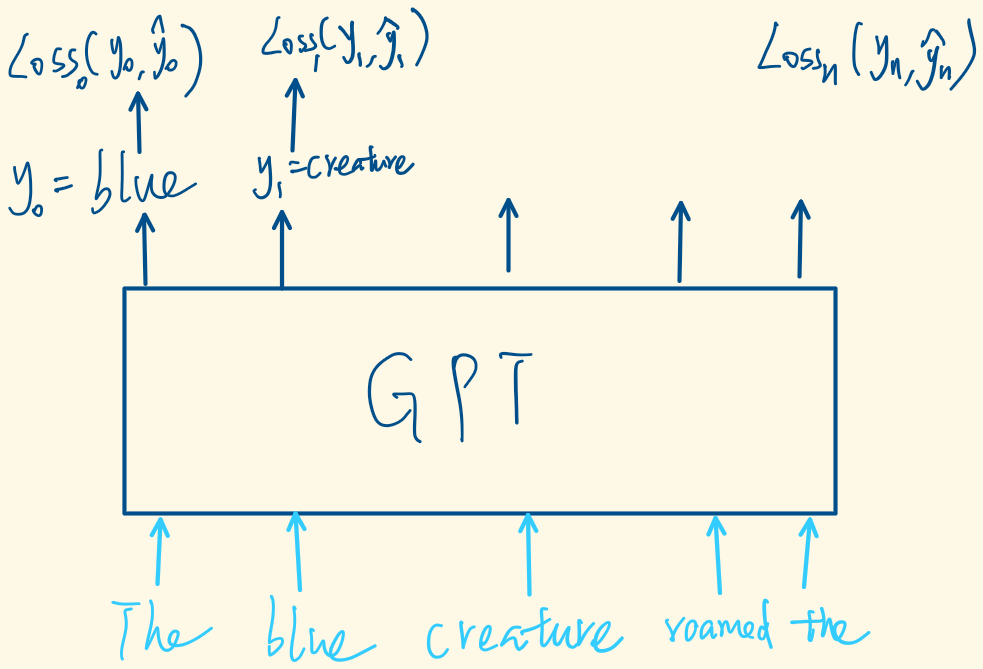 Loss₀(y₀, ŷ₀) Loss₁(y₁, ŷ₁) Lossₙ(yₙ, ŷₙ)
y₀ = blue y₁ = creature
GPT
The blue creature roamed the